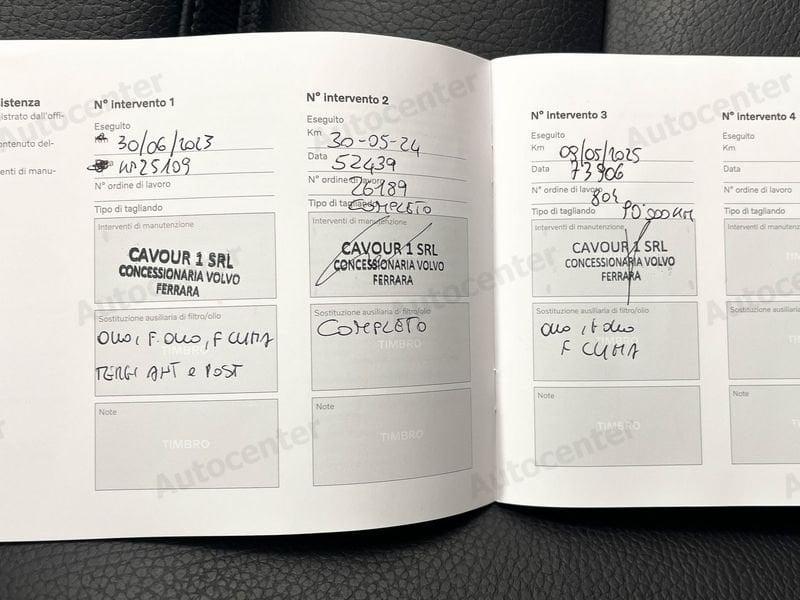 istenza
gistrato dall'offi-
ontenuto del-
enti di manu-
N° intervento 1
Eseguito
Km
30/06/2023
KM 25109
N° ordine di lavoro
Tipo di tagliando
Interventi di manutenzione
CAVOUR 1 SRL
CONCESSIONARIA VOLVO
FERRARA
Sostituzione ausiliaria di filtro/olio
OLIO, F. OLIO, F CLIMA
TIMBRO
TERGI ANT e POST
Note
TIMBRO
N° intervento 2
Eseguito
Km
30-05-24
Data
52439
N° ordine di lavoro
26189
Tipo di tagliando
COMPLETO
Interventi di manutenzione
CAVOUR 1 SRL
CONCESSIONARIA VOLVO
FERRARA
Sostituzione ausiliaria di filtro/olio
COMPLETO
TIMBRO
Note
TIMBRO
N° intervento 3
Eseguito
Km
08/05/2025
Data
73906
N° ordine di lavoro
Tipo di tagliando
90'000 KM
Interventi di manutenzione
CAVOUR 1 SRL
CONCESSIONARIA VOLVO
FERRARA
Sostituzione ausiliaria di filtro/olio
OLIO, F OLIO
F CLIMA
Note
TIMBRO
N° intervento 4
Eseguito
Km
Data
N° ordine di lavoro
Tipo di tagliando
Interventi di manutenzione
Sostituzione ausiliaria di
Note
Autocenter